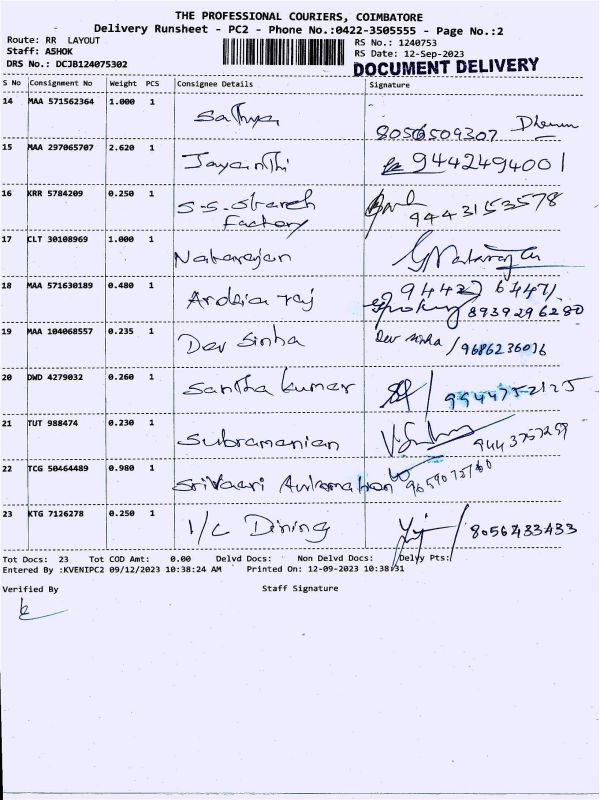 THE PROFESSIONAL COURIERS, COIMBATORE
Delivery Runsheet - PC2 - Phone No.:0422-3505555 - Page No.:2
Route: RR LAYOUT RS No.: 1240753
Staff: ASHOK RS Date: 12-Sep-2023
DRS No.: DCJB124075302 DOCUMENT DELIVERY
S No Consignment No Weight PCS Consignee Details Signature
14 MAA 571562364 1.000 1 Sathya 8056509307
15 MAA 297065707 2.620 1 Jayanthi 9442494001
16 KRR 5784209 0.250 1 S.S. Starch
Factory 9443153578
17 CLT 30108969 1.000 1 Natarajan G Natarajan
18 MAA 571630189 0.480 1 raj 8939296280
19 MAA 104068557 0.235 1 Dev Sinha Dev sinha / 9686236016
20 DWD 4279032 0.260 1 Santha kumar 9944752125
21 TUT 988474 0.230 1 Subramanian 9443757259
22 TCG 50464489 0.980 1 Srivaari Automation
23 KTG 7126278 0.250 1 I/C Dining 8056433433
Tot Docs: 23 Tot COD Amt: 0.00 Delvd Docs: Non Delvd Docs: Delvy Pts:
Entered By :KVENIPC2 09/12/2023 10:38:24 AM Printed On: 12-09-2023 10:38:31
Verified By Staff Signature